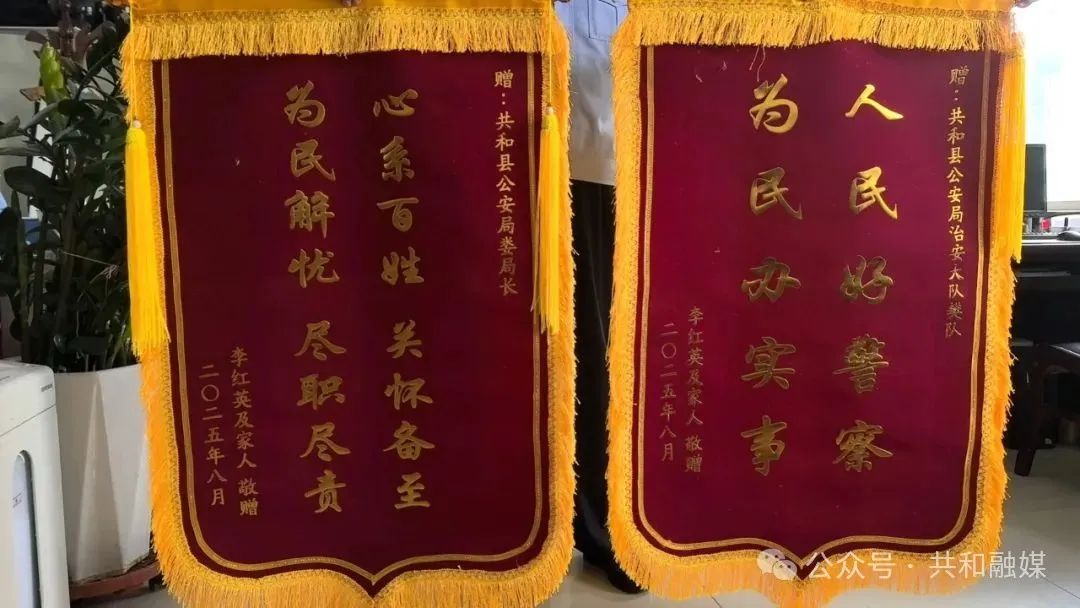 赠：共和县公安局娄局长
心系百姓 关怀备至
为民解忧 尽职尽责
李红英及家人 敬赠
二〇二五年八月
赠：共和县公安局治安大队樊队
人民好警察
为民办实事
李红英及家人 敬赠
二〇二五年八月
公众号 · 共和融媒